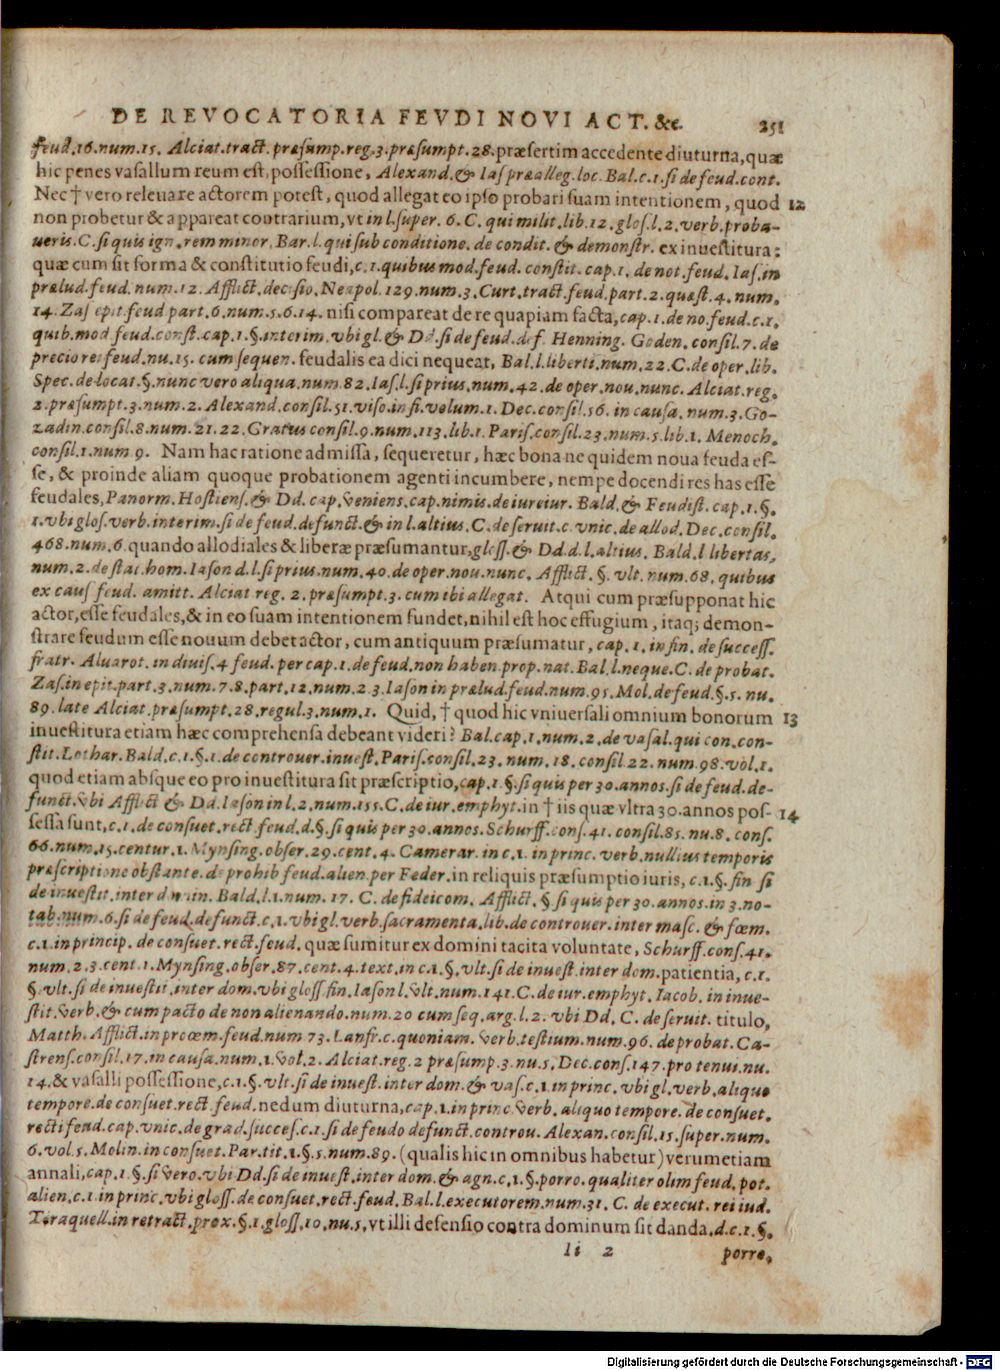 DE REVOCATORIA FEVDI NOVI ACT. &c. 251
feud. 16. num. 15. Alciat. tract. præsump. reg. 3. præsumpt. 28. præsertim accedente diuturna, quæ
hic penes vasallum reum est, possessione, Alexand. & Ias præalleg. loc. Bal. c. 1. si de feud. cont.
Nec † vero releuare actorem potest, quod allegat eo ipso probari suam intentionem, quod 12
non probetur & appareat contrarium, vt in l. super. 6. C. qui milit. lib. 12. glos. l. 2. verb. proba-
ueris. C. si quis ign. rem minor. Bar. l. qui sub conditione. de condit. & demonstr. ex inuestitura:
quæ cum sit forma & constitutio feudi, c. 1. quibus mod. feud. constit. cap. 1. de not. feud. Ias. in
prælud. feud. num. 12. Afflict. decisio. Neapol. 129. num. 3. Curt. tract. feud. part. 2. quæst. 4. num.
14. Zas epit. feud part. 6. num. 5. 6. 14. nisi compareat de re quapiam facta, cap. 1. de no. feud. c. 1.
quib. mod feud. const. cap. 1. §. interim. vbi gl. & Dd. si de feud. def. Henning. Goden. consil. 7. de
precio rei feud. nu. 15. cum sequen. feudalis ea dici nequeat, Bal. l. liberti. num. 22. C. de oper. lib.
Spec. de locat. §. nunc vero aliqua. num. 82. Ias. l. si prius. num. 42. de oper. nou. nunc. Alciat. reg.
2. præsumpt. 3. num. 2. Alexand. consil. 51. viso. in fi. volum. 1. Dec. consil. 56. in causa. num. 3. Go-
zadin. consil. 8. num. 21. 22. Gratus consil. 9. num. 113. lib. 1. Paris. consil. 23. num. 5. lib. 1. Menoch.
consil. 1. num 9. Nam hac ratione admissa, sequeretur, hæc bona ne quidem noua feuda es-
se, & proinde aliam quoque probationem agenti incumbere, nempe docendi res has esse
feudales, Panorm. Hostiens. & Dd. cap. veniens. cap. nimis. de iureiur. Bald. & Feudist. cap. 1. §.
1. vbi glos. verb. interim. si de feud. defunct. & in l. altius. C. de seruit. c. vnic. de allod. Dec. consil.
468. num. 6. quando allodiales & liberæ præsumantur, gloss. & Dd. d. l. altius. Bald. l libertas,
num. 2. de stat. hom. Iason d. l. si prius. num. 40. de oper. nou. nunc. Afflict. §. vlt. num. 68. quibus
ex caus feud. amitt. Alciat reg. 2. præsumpt. 3. cum ibi allegat. Atqui cum præsupponat hic
actor, esse feudales, & in eo suam intentionem fundet, nihil est hoc effugium, itaq; demon-
strare feudum esse nouum debet actor, cum antiquum præsumatur, cap. 1. in fin. de success.
fratr. Aluarot. in diuis. 4 feud. per cap. 1. de feud. non haben. prop. nat. Bal. l. neque. C. de probat.
Zas. in epit. part. 3. num. 7. 8. part. 12. num. 2. 3. Iason in prælud. feud. num. 95. Mol. de feud. §. 5. nu.
89. late Alciat. præsumpt. 28. regul. 3. num. 1. Quid, † quod hic vniuersali omnium bonorum 13
inuestitura etiam hæc comprehensa debeant videri? Bal. cap. 1. num. 2. de vasal. qui con. con-
stit. Lothar. Bald. c. 1. §. 1. de controuer. inuest. Paris. consil. 23. num. 18. consil. 22. num. 98. vol. 1.
quod etiam absque eo pro inuestitura sit præscriptio, cap. 1. §. si quis per 30. annos. si de feud. de-
funct. vbi Afflict & Dd. Iason in l. 2. num. 155. C. de iur. emphyt. in † iis quæ vltra 30. annos pos- 14
sessa sunt, c. 1. de consuet. rect. feud. d. §. si quis per 30. annos. Schurff. cons. 41. consil. 85. nu. 8. cons.
66. num. 15. centur. 1. Mynsing. obser. 29. cent. 4. Camerar. in c. 1. in princ. verb. nullius temporis
præscriptione obstante. de prohib feud. alien. per Feder. in reliquis præsumptio iuris, c. 1. §. fin si
de inuestit. inter dom in. Bald. l. 1. num. 17. C. de fideicom. Afflict. § si quis per 30. annos. in 3. no-
tab. num. 6. si de feud. defunct. c. 1. vbi gl. verb. sacramenta. lib. de controuer. inter masc. & fœm.
c. 1. in princip. de consuet. rect. feud. quæ sumitur ex domini tacita voluntate, Schurff. cons. 41.
num. 2. 3. cent. 1. Mynsing. obser. 87. cent. 4. text. in c. 1. §. vlt. si de inuest. inter dom. patientia, c. 1.
§. vlt. si de inuestit. inter dom. vbi gloss fin. Iason l. vlt. num. 141. C. de iur. emphyt. Iacob. in inue-
stit. verb. & cum pacto de non alienando. num. 20 cum seq. arg. l. 2. vbi Dd. C. de seruit. titulo,
Matth. Afflict. in prœœm. feud. num 73. Lanfr. c. quoniam. verb. testium. num. 96. de probat. Ca-
strens. consil. 17. in causa. num. 1. vol. 2. Alciat. reg. 2 præsump. 3. nu. 5. Dec. cons. 147. pro tenui. nu.
14. & vasalli possessione, c. 1. §. vlt. si de inuest. inter dom. & vas. c. 1. in princ. vbi gl. verb. aliquo
tempore. de consuet. rect. feud. nedum diuturna, cap. 1. in princ verb. aliquo tempore. de consuet.
recti feud. cap. vnic. de grad. succes. c. 1. si de feudo defunct. controu. Alexan. consil. 15. super. num.
6. vol. 5. Molin. in consuet. Par. tit. 1. §. 5. num. 89. (qualis hic in omnibus habetur) verumetiam
annali, cap. 1. §. si vero. vbi Dd. si de inuest. inter dom. & agn. c. 1. §. porro. qualiter olim feud. pot.
alien. c. 1. in princ. vbi gloss. de consuet. rect. feud. Bal. l. executorem. num. 31. C. de execut. rei iud.
Tiraquell. in retract. prox. §. 1. gloss. 10. nu. 5. vt illi defensio contra dominum sit danda, d. c. 1. §.
Ii 2 porro,
Digitalisierung gefördert durch die Deutsche Forschungsgemeinschaft - DFG